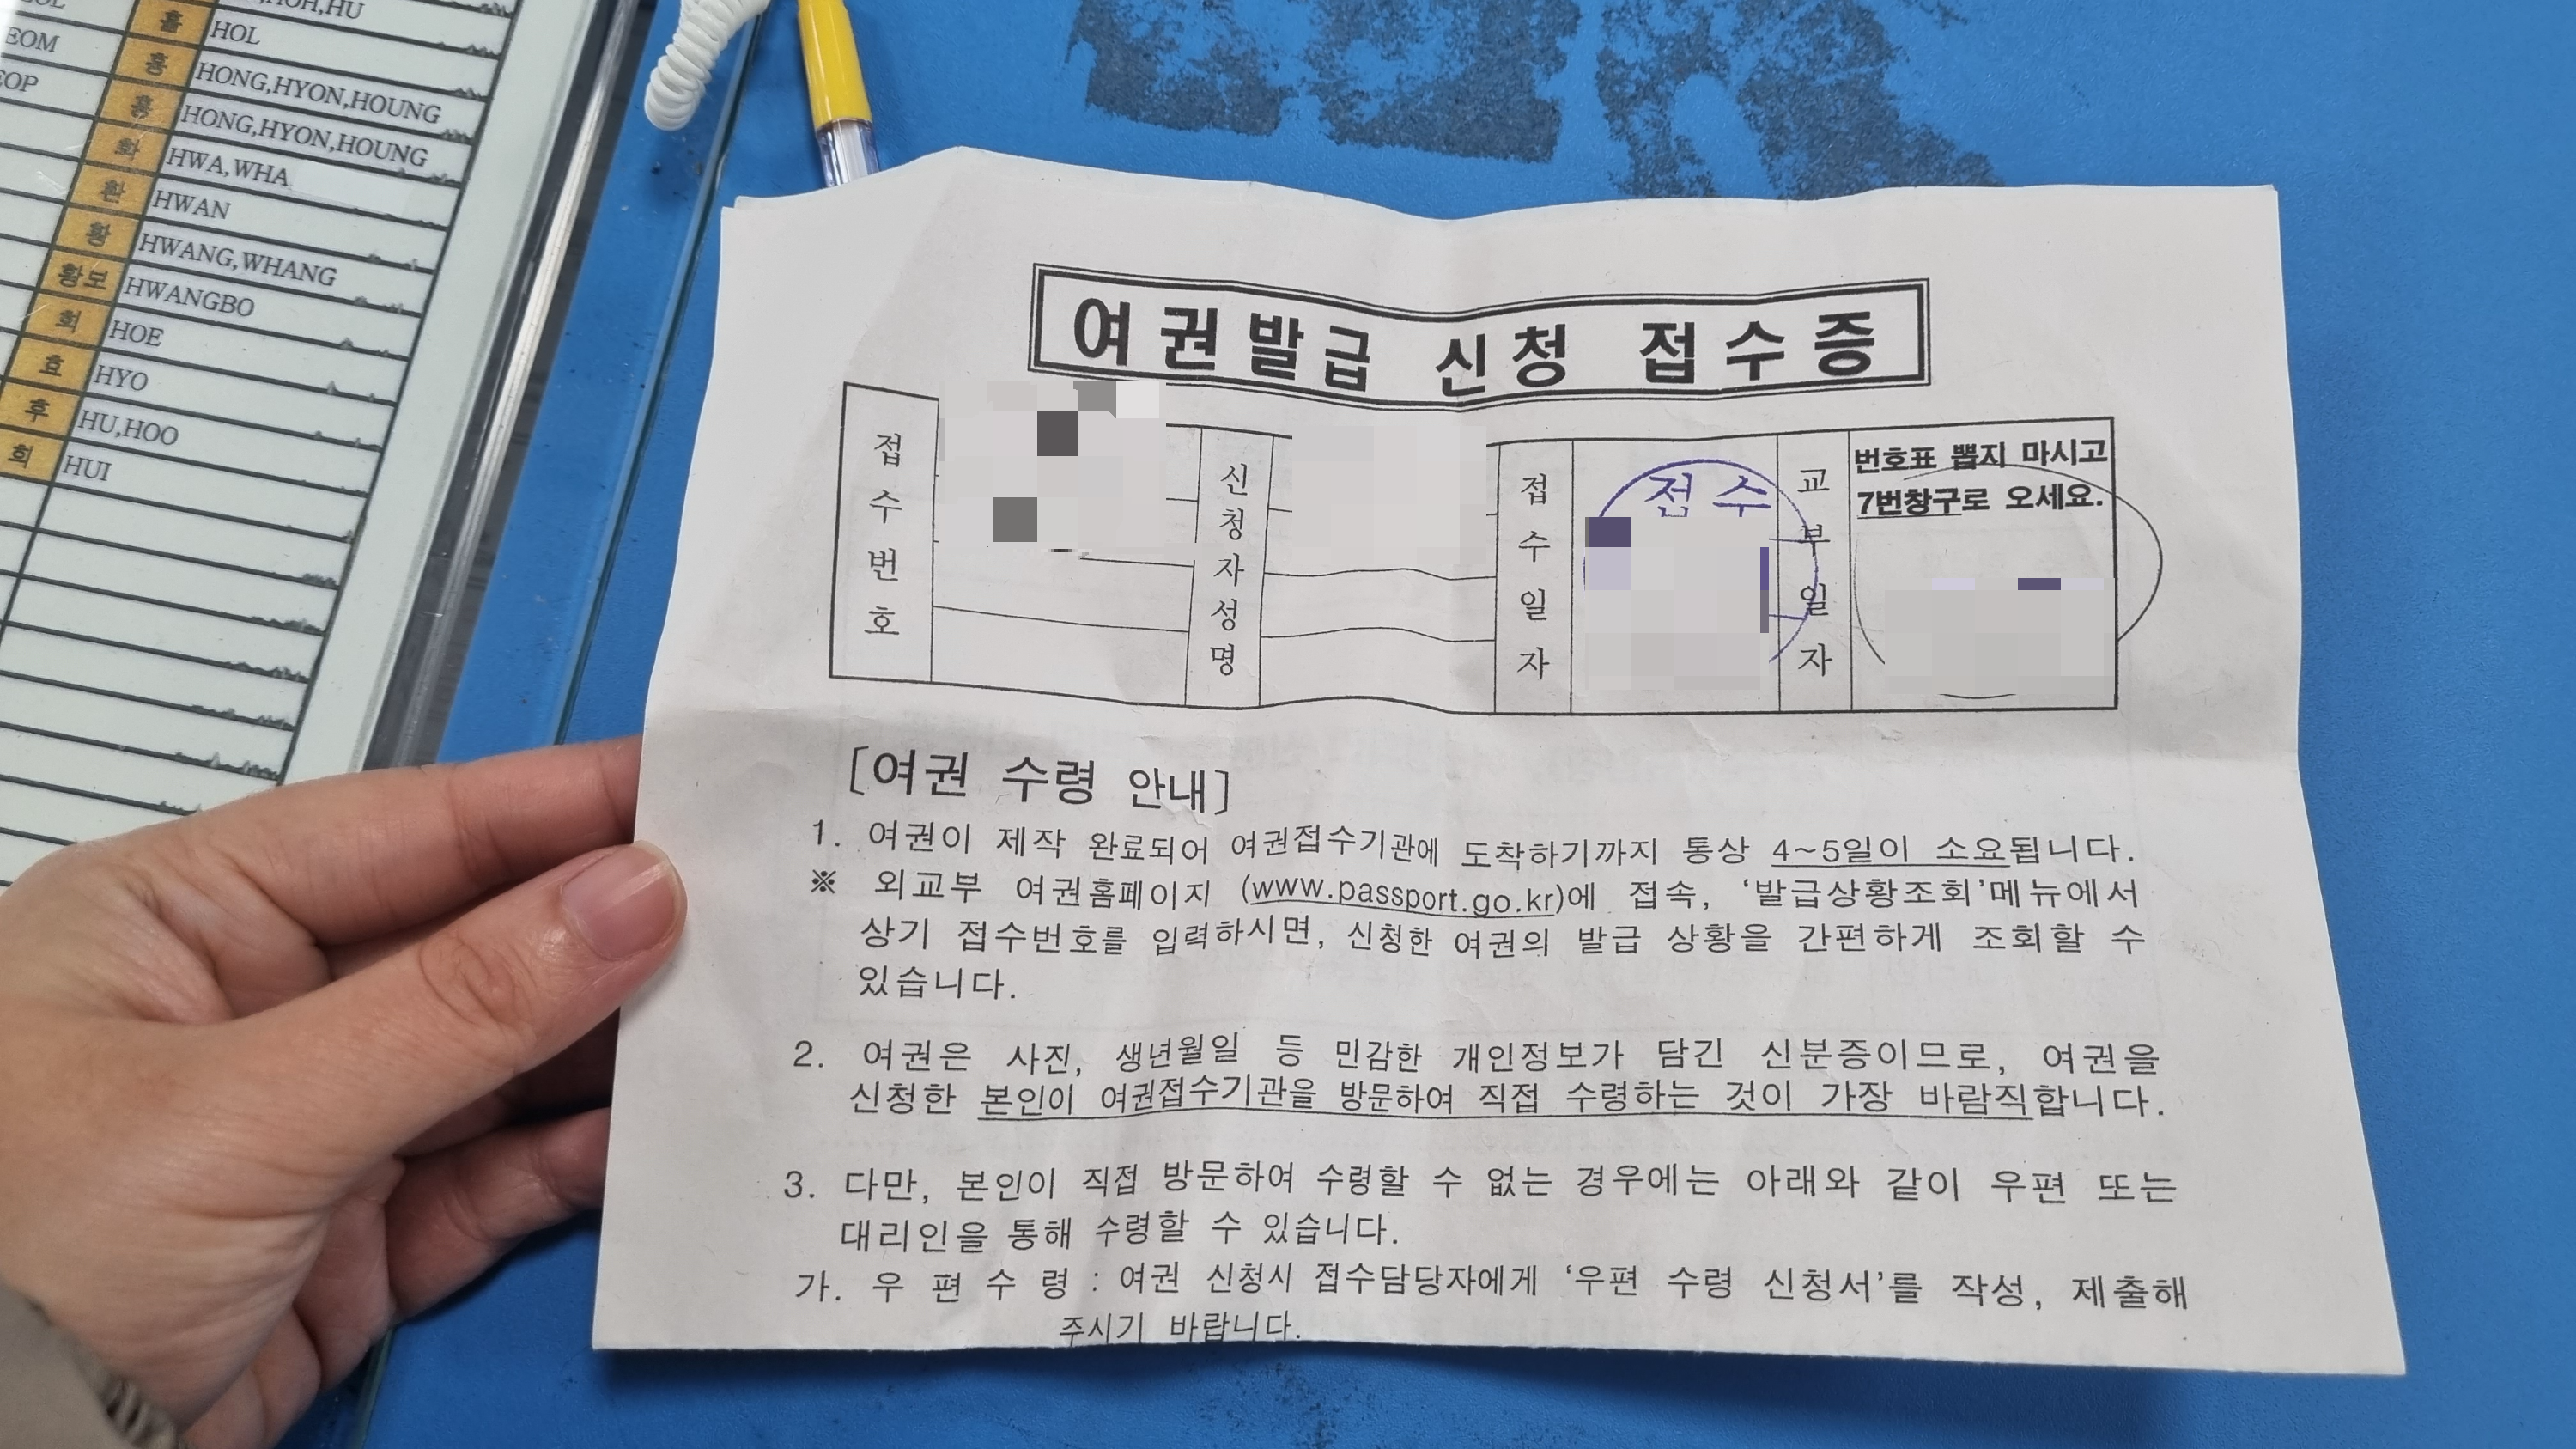 HU
홀 HOL
EOM 홍 HONG,HYON,HOUNG
EOP 홍 HONG,HYON,HOUNG
화 HWA,WHA
환 HWAN
황 HWANG,WHANG
황보 HWANGBO
회 HOE
효 HYO
후 HU,HOO
희 HUI
여권발급 신청 접수증
접수번호
신청자성명
접수일자
접수
교부일자
번호표 뽑지 마시고
7번창구로 오세요.
[여권 수령 안내]
1. 여권이 제작 완료되어 여권접수기관에 도착하기까지 통상 4~5일이 소요됩니다.
※ 외교부 여권홈페이지 (www.passport.go.kr)에 접속, '발급상황조회'메뉴에서
상기 접수번호를 입력하시면, 신청한 여권의 발급 상황을 간편하게 조회할 수
있습니다.
2. 여권은 사진, 생년월일 등 민감한 개인정보가 담긴 신분증이므로, 여권을
신청한 본인이 여권접수기관을 방문하여 직접 수령하는 것이 가장 바람직합니다.
3. 다만, 본인이 직접 방문하여 수령할 수 없는 경우에는 아래와 같이 우편 또는
대리인을 통해 수령할 수 있습니다.
가. 우 편 수 령 : 여권 신청시 접수담당자에게 '우편 수령 신청서'를 작성, 제출해
주시기 바랍니다.